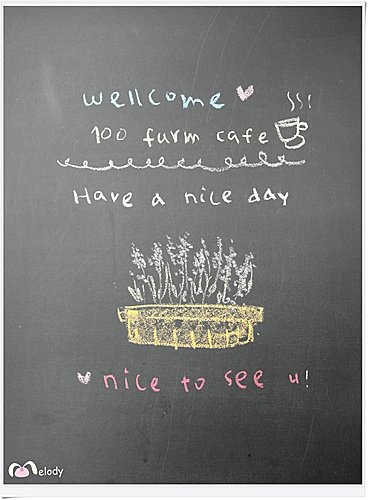 wellcome
100 furm cafe
Have a nice day
nice to see u!
Melody